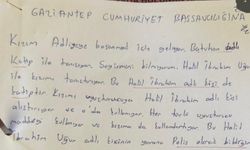 GAZİANTEP CUMHURİYET BAŞSAVCILIĞINA
Kızım Adliyeye basvurmak icin gelişen Batuhan adlı
Katip ile tanışıyor Soyismini bilmiyorum. Halil İbrahim Uğur
ile kızımı tanıştırıyor Bu Halil İbrahim adlı kişi de
Kızımı uyuşturucuya Halil İbrahim adlı kişi
alıştırıyor ve o'da kullanıyor Her türlü uyuşturucu
maddeyi kullanıyor ve kızıma da kullandırtıyor Bu Halil
İbrahim Uğur adlı kızımın yanına Polis olarak